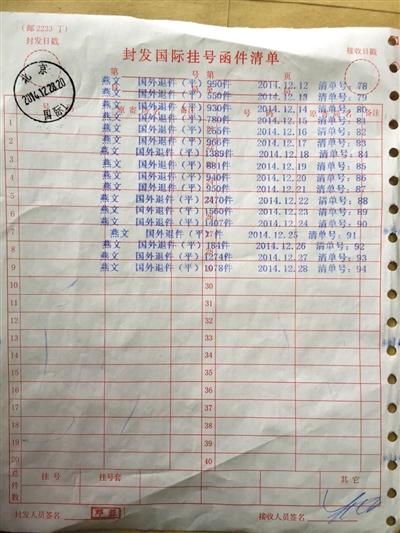 (邮2233丁)
封发日戳
接收日戳
封发国际挂号函件清单
北京
2014.12.28.20
国际
第 号 第 页
燕文 国外退件(平)990件 2014.12.12 清单号:78
燕文 国外退件(平)550件 2014.12.13 清单号:79
燕文 国外退件(平)930件 2014.12.14 清单号:80
燕文 国外退件(平)780件 2014.12.15 清单号:81
燕文 国外退件(平)265件 2014.12.16 清单号:82
燕文 国外退件(平)966件 2014.12.17 清单号:83
燕文 国外退件(平)1389件 2014.12.18 清单号:84
燕文 国外退件(平)881件 2014.12.19 清单号:85
燕文 国外退件(平)940件 2014.12.20 清单号:86
燕文 国外退件(平)950件 2014.12.21 清单号:87
燕文 国外退件(平)2470件 2014.12.22 清单号:88
燕文 国外退件(平)1560件 2014.12.23 清单号:89
燕文 国外退件(平)1407件 2014.12.24 清单号:90
燕文 国外退件(平)1件 2014.12.25 清单号:91
燕文 国外退件(平)184件 2014.12.26 清单号:92
燕文 国外退件(平)1274件 2014.12.27 清单号:93
燕文 国外退件(平)1078件 2014.12.28 清单号:94
备注
1
2
3
4
5
6
7
8
9
10 30
11 31
12 32
13 33
14 34
15 35
16 36
17 37
18 38
19 39
20 40
总件数 挂号 挂号套 其它
封发人员签名 接收人员签名